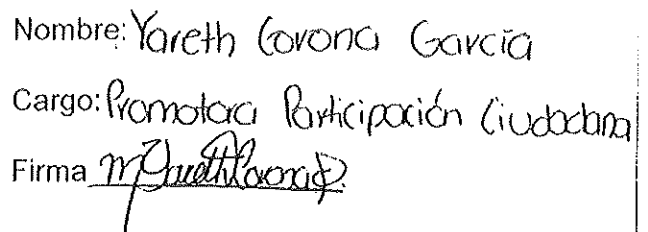 Nombre: Yareth Corona García
Cargo: Promotora Participación Ciudadana
Firma M Yareth Corona G.